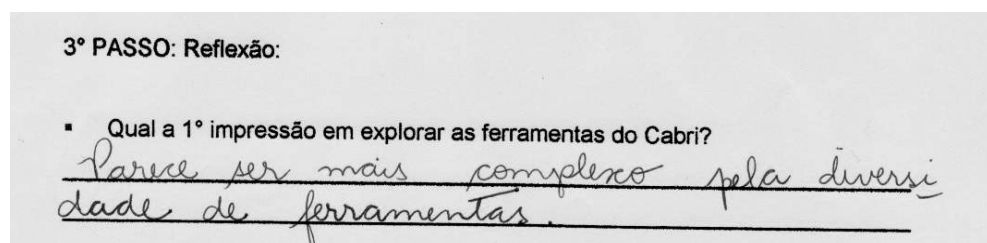 3° PASSO: Reflexão:
▪ Qual a 1° impressão em explorar as ferramentas do Cabri?
Parece ser mais complexo pela diversi
dade de ferramentas.